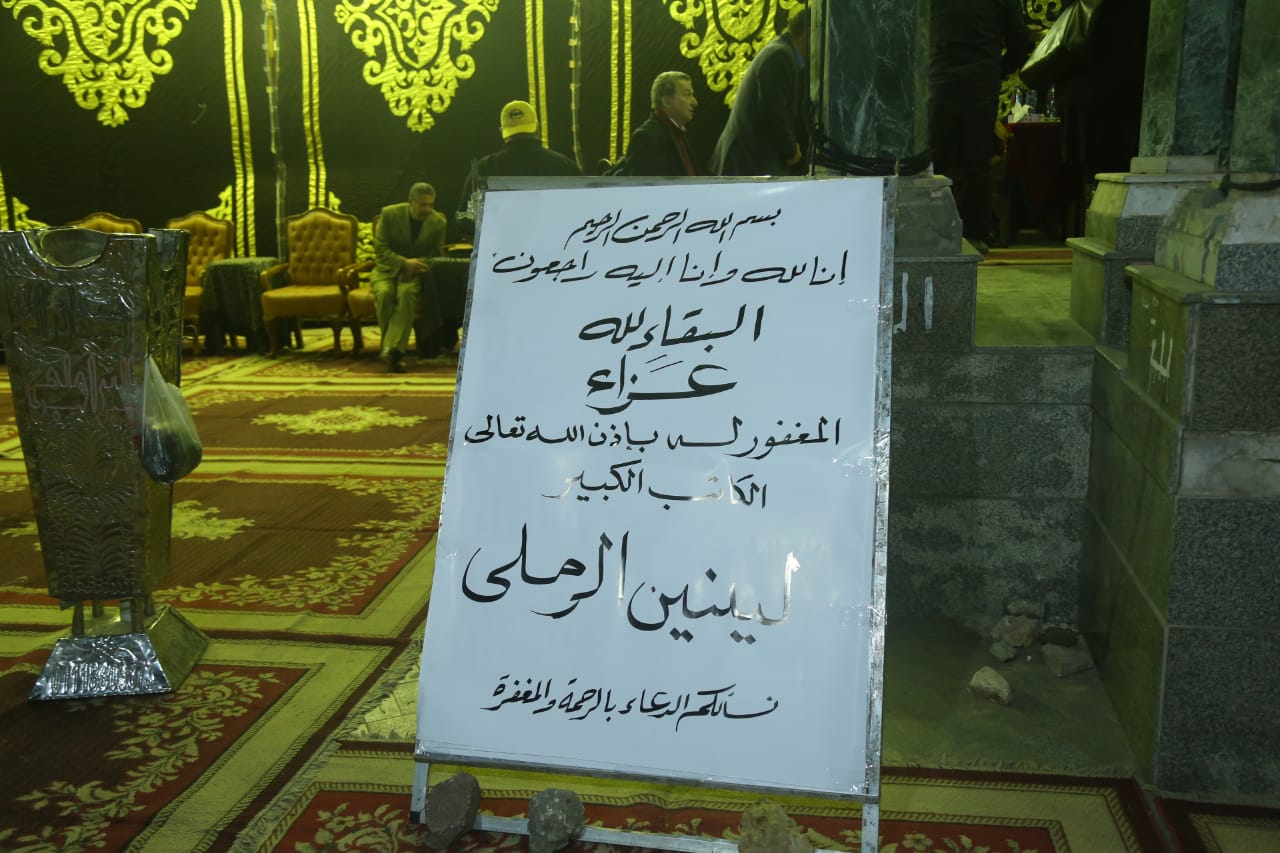 بسم الله الرحمن الرحيم
إنا لله وإنا إليه راجعون
البقاء لله
عَزاء
المغفور له بإذن الله تعالى
الكاتب الكبير
لينين الرملى
نسألكم الدعاء بالرحمة والمغفرة